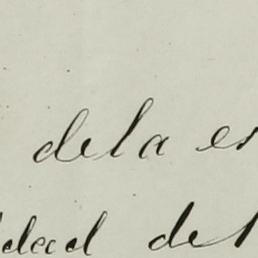 dela es
dad del